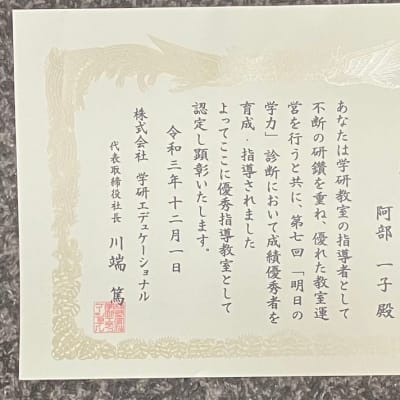 阿部 一子 殿
あなたは学研教室の指導者として
不断の研鑽を重ね、優れた教室運
営を行うと共に、第七回「明日の
学力」診断において成績優秀者を
育成・指導されました
よってここに優秀指導教室として
認定し顕彰いたします。
令和三年十二月一日
株式会社 学研エデュケーショナル
代表取締役社長 川端 篤